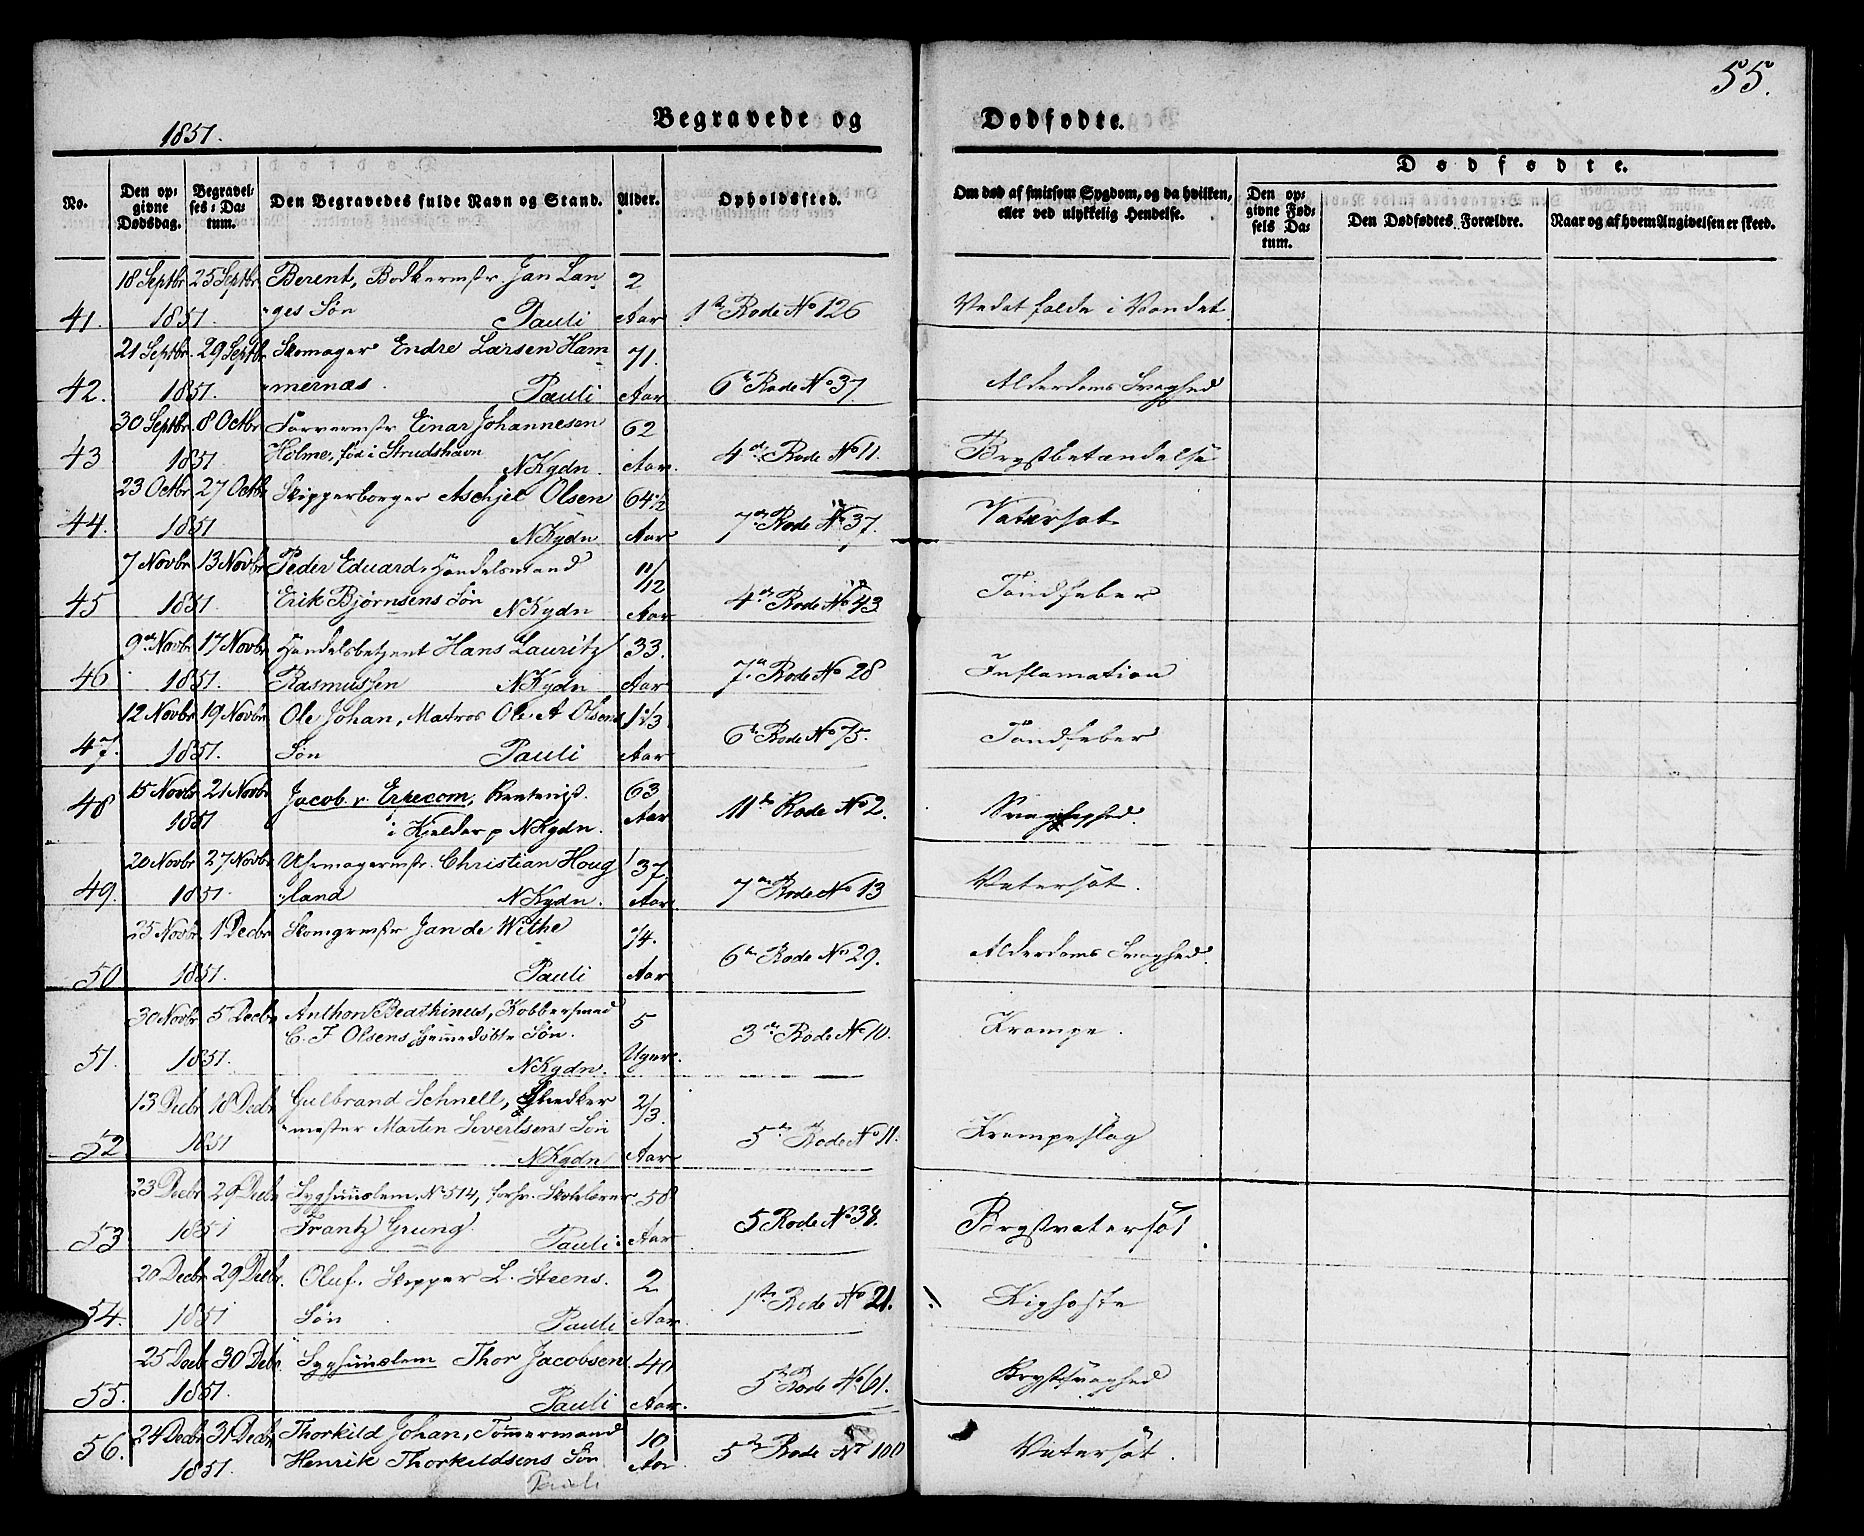 55.
1851.
Begravede og Dødfødte.
Dødfødte.
No.
Den opgivne Dødsdag.
Begravelses-Datum.
Den Begravedes fulde Navn og Stand.
Alder.
Opholdssted.
Om død af smitsom Sygdom, og da hvilken, eller ved ulykkelig Hendelse.
Den opgivne Fødsels Datum.
Den Dødfødtes Forældre.
Naar og af hvem Angivelsen er skeed.
18 Septbr 25 Septbr Berent, Bødkermstr. Jan Lan- 2
41. 1851. ges Søn Pauli Aar 1ste Rode No 126 Vedat falde i Vandet.
21 Septbr. 29 Septbr. Skomager Endre Larsen Ham- 71.
42. 1851. mernæs. Pauli Aar 6te Rode No 37. Alderdoms Svaghed
30 Septbr. 8 Octbr Farvermstr Einar Johannesen 62
43 1851 Holme, fød i Strudshavn N Kgdn. Aar. 4de Rode No 11. Brystbetændelse
23 Octbr. 27 Octbr Skipperborger Aschjel Olsen 64 1/2
44. 1851 N Kgdn Aar 7de Rode No 37. Vatersot
7 Novbr. 13 Novbr Peder Eduard, Handelsmand 11/12
45 1851. Erik Bjørnsens Søn N Kgdn Aar 4de Rode No 43. Tandfeber
9de Novbr. 17 Novbr Handelsbetjent Hans Lauritz 33.
46 1851. Rasmussen N Kgdn Aar 7de Rode No 28 Inflamation
12 Novbr. 19 Novbr. Ole Johan, Matros Ole A Olsens 1 1/3
47. 1851. Søn Pauli Aar 6te Rode No 75. Tandfeber
15 Novbr 21 Novbr. Jacob v. Erpecom, 63
48 1851 i Kjelder p N Kgdn. Aar 11te Rode No 2. Svaghed.
20 Novbr. 27 Novbr. Uhrmagermstr. Christian Houg 37.
49. 1851. land N Kgdn. Aar. 7de Rode No 13 Vatersot.
25 Novbr. 1 Decbr Skomgrmstr Jan de Withe 74.
50 1851. Pauli Aar 6te Rode No 29. Alderdoms Svaghed.
30 Novbr. 5 Decbr. Anthon Beathinus, Kobbersmed 5
C. F Olsens hjemedøbte Søn.
51. 1851. N Kgdn. Uger. 3de Rode No 10. Krampe.
13 Decbr. 18 Decbr Gulbrand Schnell, Snedker 2/3.
mester Martin Sivertsens Søn
52 1851 N Kgdn Aar 5te Rode No 11. Krampeslag
23 Decbr 29 Decbr. Syghuuslem, No 514, forhv. Skolelærer 58
53 1851 Frantz Grung. Pauli Aar 5 Rode No 38. Brystvatersot
20 Decbr. 29 Decbr. Oluf. Skipper L. Steens. 2
54. 1851 Søn Pauli Aar. 1ste Rode No 21. Kighoste
25 Decbr 30 Debr. Syghuuslem Thor Jacobsen. 40
55. 1851. Pauli Aar. 5te Rode No 61. Brystsvaghed
24 Decbr. 31 Decbr. Thorkild Johan, Tømmermand 10
56. 1851. Henrik Thorkildsens Søn Aar. 5te Rode No 100 Vatersot.
Pauli